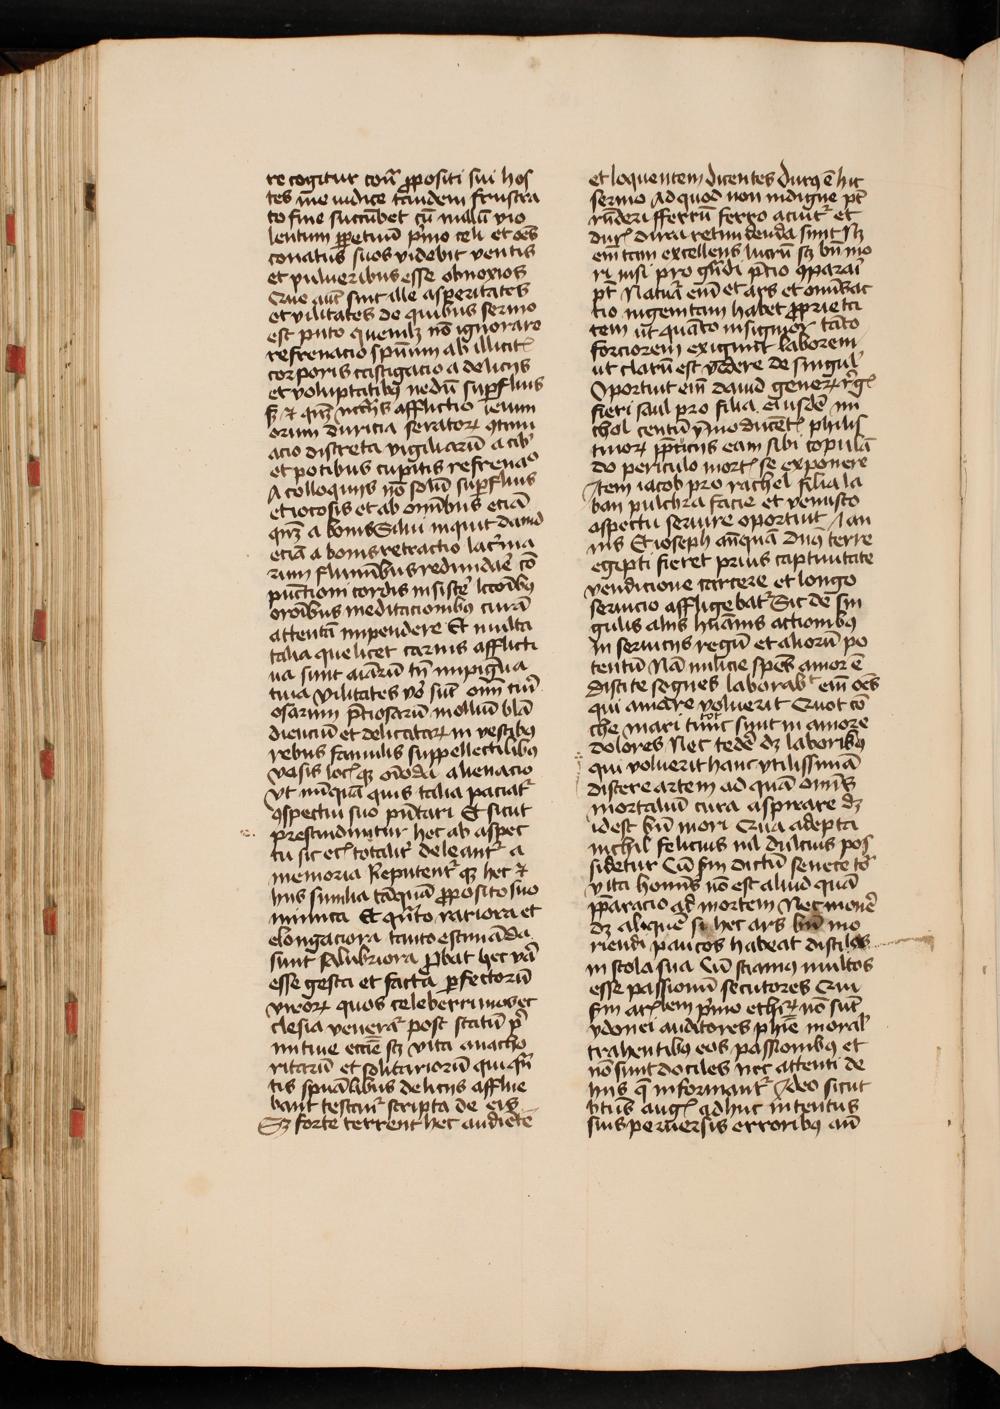 re cogitur contra propositi sui hos
tes me iudice tandem frustra
to fine sucūbet cū nullū vio
lentum ꝑpetuū pͥmo celi et oēs
conatus suos videbit ventis
et pulueribus esse obnoxios
Que aūt sint ille asperitates
et vilitates de quibus sermo
est puto quenlꝫ nō ignorare
refrenacio spūum ab illicitꝭ
corporis castigacio a delicijs
et voluptatibꝰ nedū suꝑfluis
afflictio ieiuni
orum duricia seratoꝝ ꝯtinu
acio discreta vigiliarū a cibꝰ
et potibus cupitis refrenacio
A colloquijs nō solū suꝑfluis
et iocosis et ab omībus eciā
qnꝫ a bonis Silui inquit dauid
eciā a bonis retractio lacͥma
rum fluminibus redundāe cō
punctioni cordis insistē lcōnibꝰ
orōnibus meditacionibꝰ curā
attentā impendere Et multa
talia que licet carnis afflicti
ua sunt aīarū tn̄ impigua
tiua Vilitates vͦo sūt omīm cuͥ
osarum p̄ciosarū molliū blā
dienciū et delicataꝝ in vestibꝰ
rebus famulis suppellectilibꝰ
vasis locꝭ qꝫ oīoda alienacio
Vt nūquā quis talia paciatͬ
ꝯspectui suo pn̄tari Et sicut
prescinduntur hec ab aspec
tu sic eciā totalitͬ deleantͬ a
memoria Reputentͬ qꝫ hec et
hijs similia tāquā ꝓposito suo
inimica Et quāto rariora et
elongaciora tanto estimāda
sunt salubriora Probat hec vīa
esse gesta et facta ꝑfectorū
viroꝝ quos celeberrimos ec
clesia venerat post statū pͥ
mitiue ecc̄ie sꝫ vita anacho
ritarū et solitariorū qui qn̄
tis spūalibus delicijs afflue
bant testantͬ scripta de eis
Sꝫ forte terrent hec audiētē
et loquentem dicentes Durꝰ ē hic
sermo Ad quod non indigne pōt
rn̄deri fferrū ferro acuitͬ et
durꝭ dura retundenda sunt Nꝫ
eīm tam excellens lucrū sꝫ bn̄ mo
ri nisi pro grādi p̄cio ꝯparari
pōt Naturā eīm et ars et omīs ac
tio ingenitam habet ꝓprieta
tem ut quāto insignior tāto
forciorem exigunt laborem
ut clarū est videre de singulꝭ
Oportuit eīm dauid generū rēgꝭ
fieri saul pro filia eiusdē mi
chol centū ymo ducētꝭ philis
tinoꝝ p̄puciis eam sibi copulā
do periculo mortꝭ se exponere
Item iacob pro rachel filia la
ban pulchra facie et venusto
aspectu seruire oportuit ⁊ an
nis Et ioseph anͣquā dn̄s terre
egipti fieret prius captiuitate
vendicione carcere et longo
seruicio affligebatͬ Sic de sin
gulis alijs hūanis actionibꝰ
in seruicijs regū et aliorū po
tentū Nā milicie spēs amor ē
discite segnes laborabͭ eīm oēs
qui amare voluerit Quot cō
che mari tot sunt in amore
dolores Nec tedē dꝫ laboribꝰ
qui voluerit hanc vtilissimā
discere artem ad quā omīs
mortaliū cura aspirare dꝫ
id est bn̄ mori Qua adepta
nichil felicius nil dulcius pos
sidetur Cū sm̄ dictū senece tota
vita homīs nō est aliud quā
p̄paracio ad mortem Nec mouē
dꝫ aliquē si hec ars bn̄ mo
riendi paucos habeat discilos
in scola sua Cū sciamꝰ multos
esse passionū secutores Qui
sm̄ arꝭlem pͥmo ethicoꝝ nō sūt
ydonei auditores phīe moralꝭ
trahentibꝰ eos passionibꝰ et
nō sunt dociles nec attenti de
hijs q̄ informantͬ Ideo sicut
btūs augꝭ adhuc intentus
suis peruersis erroribꝰ aū